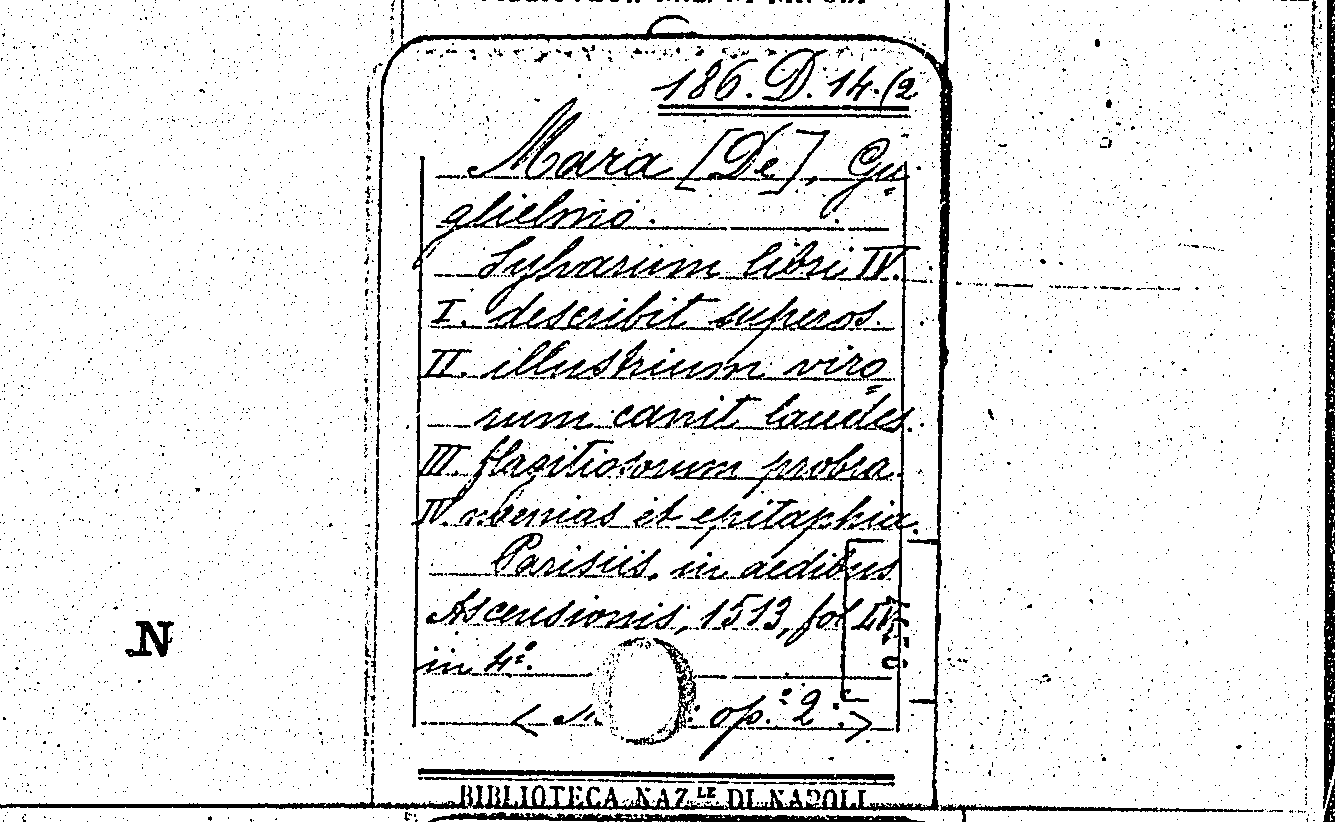 186. D. 14. (2
Mara [De], Gu=
glielmo.
Sylvarum libri IV.
I. describit superos.
II. illustrium viro=
rum canit laudes.
III. flagitiosorum probra.
IV. noenias et epitaphia.
Parisiis, in aedibus
Ascensionis, 1513, fol
in 4º.
op. 2
N
BIBLIOTECA NAZ.LE DI NAPOLI